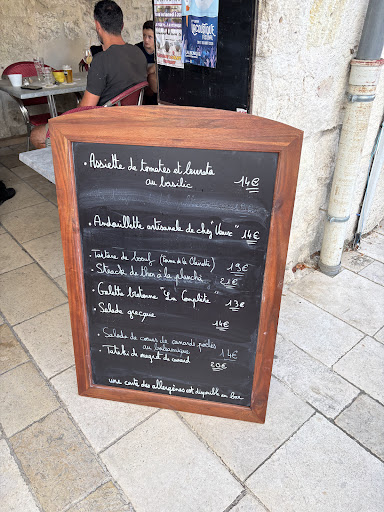 • Assiette de tomates et burrata
au basilic 14€
• Andouillette artisanale de chez " " 14€
• Tartare de bœuf (Ferme de la ) 19€
• Steack de thon à la planche 21€
• Galette bretonne "La Complète" 13€
• Salade grecque 14€
• Salade de cœurs de canards poêlés
au balsamique 14€
• Tataki de magret de canard 20€
une carte des allergènes est disponible en bar